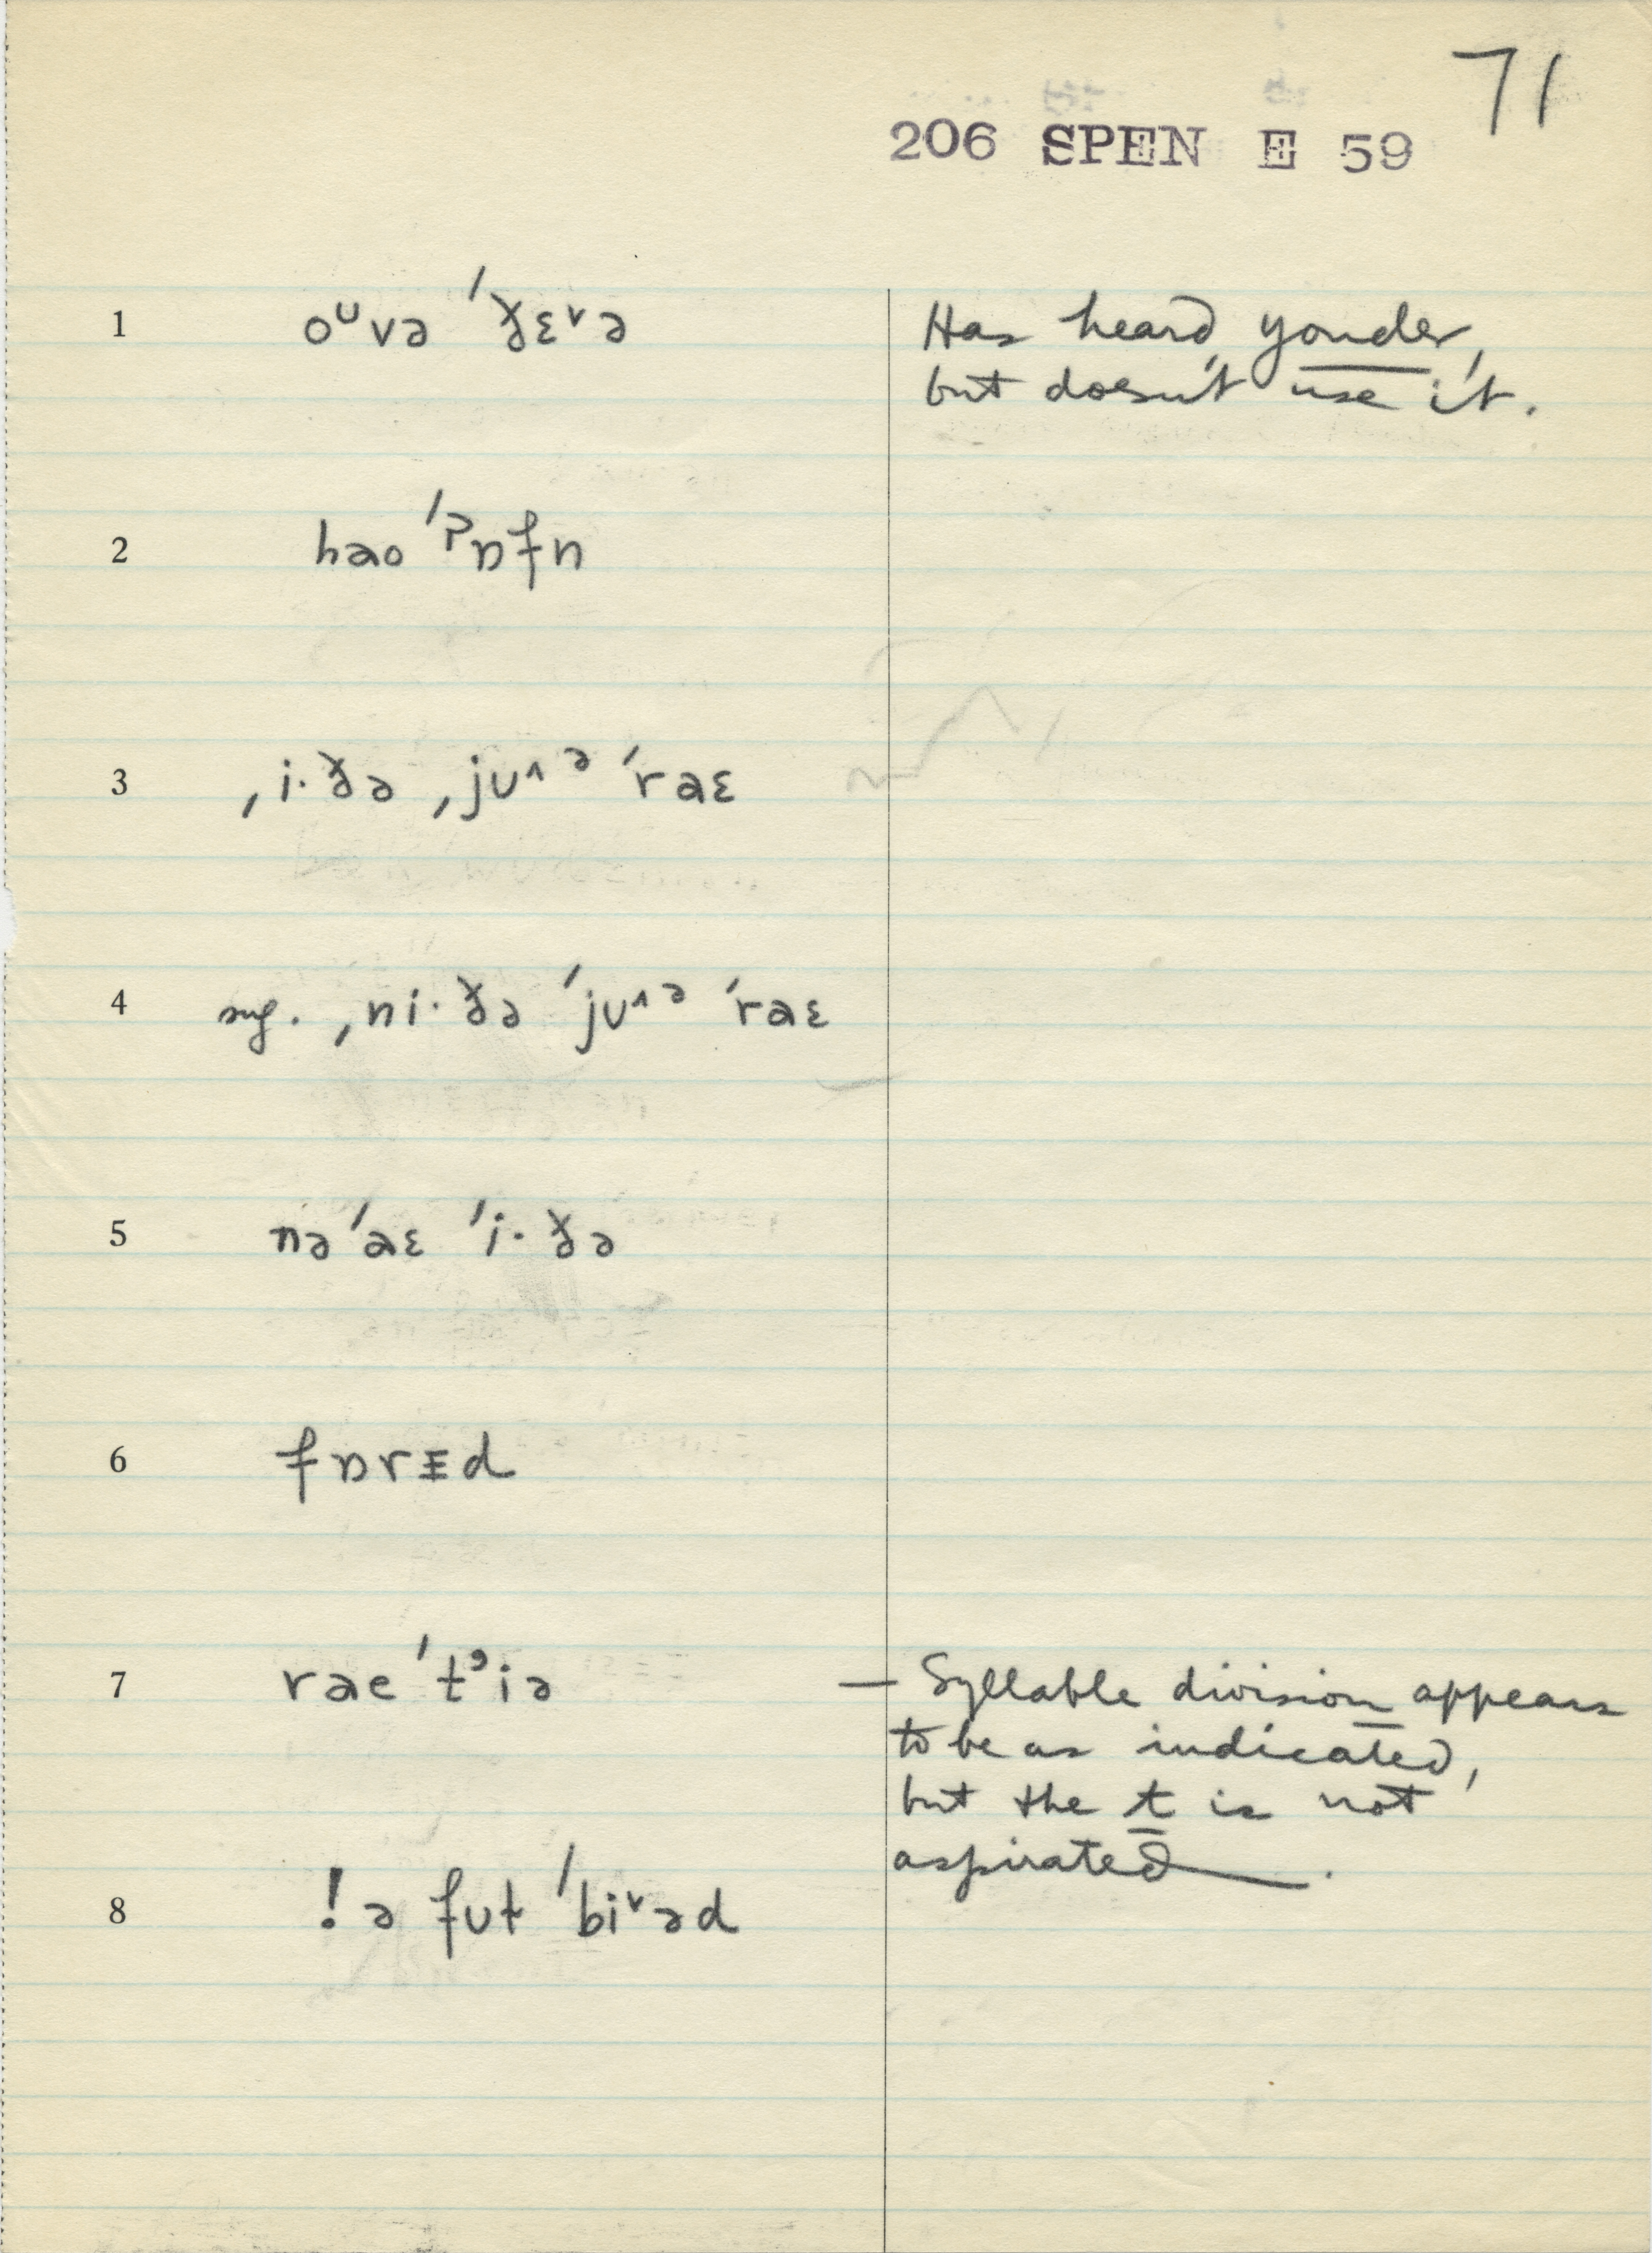 71
206 SPEN E 59
1 oᶸvə ˈðɛ˅ə
Has heard yonder,
but doesn't use it.
2 hao ˈʔɒfn
3 ˌi·ðə ˌjʊ˄ᵊ ˈraɛ
4 sug. ˌni·ðə ˈjʊ˄ᵊ ˈraɛ
5 nəˈaɛ ˈi·ðə
6 fɒrɪd
7 raeˈt̓iə
— Syllable division appears
to be as indicated,
but the t is not
aspirated.
8 ! ə fʊt ˈbi˅əd